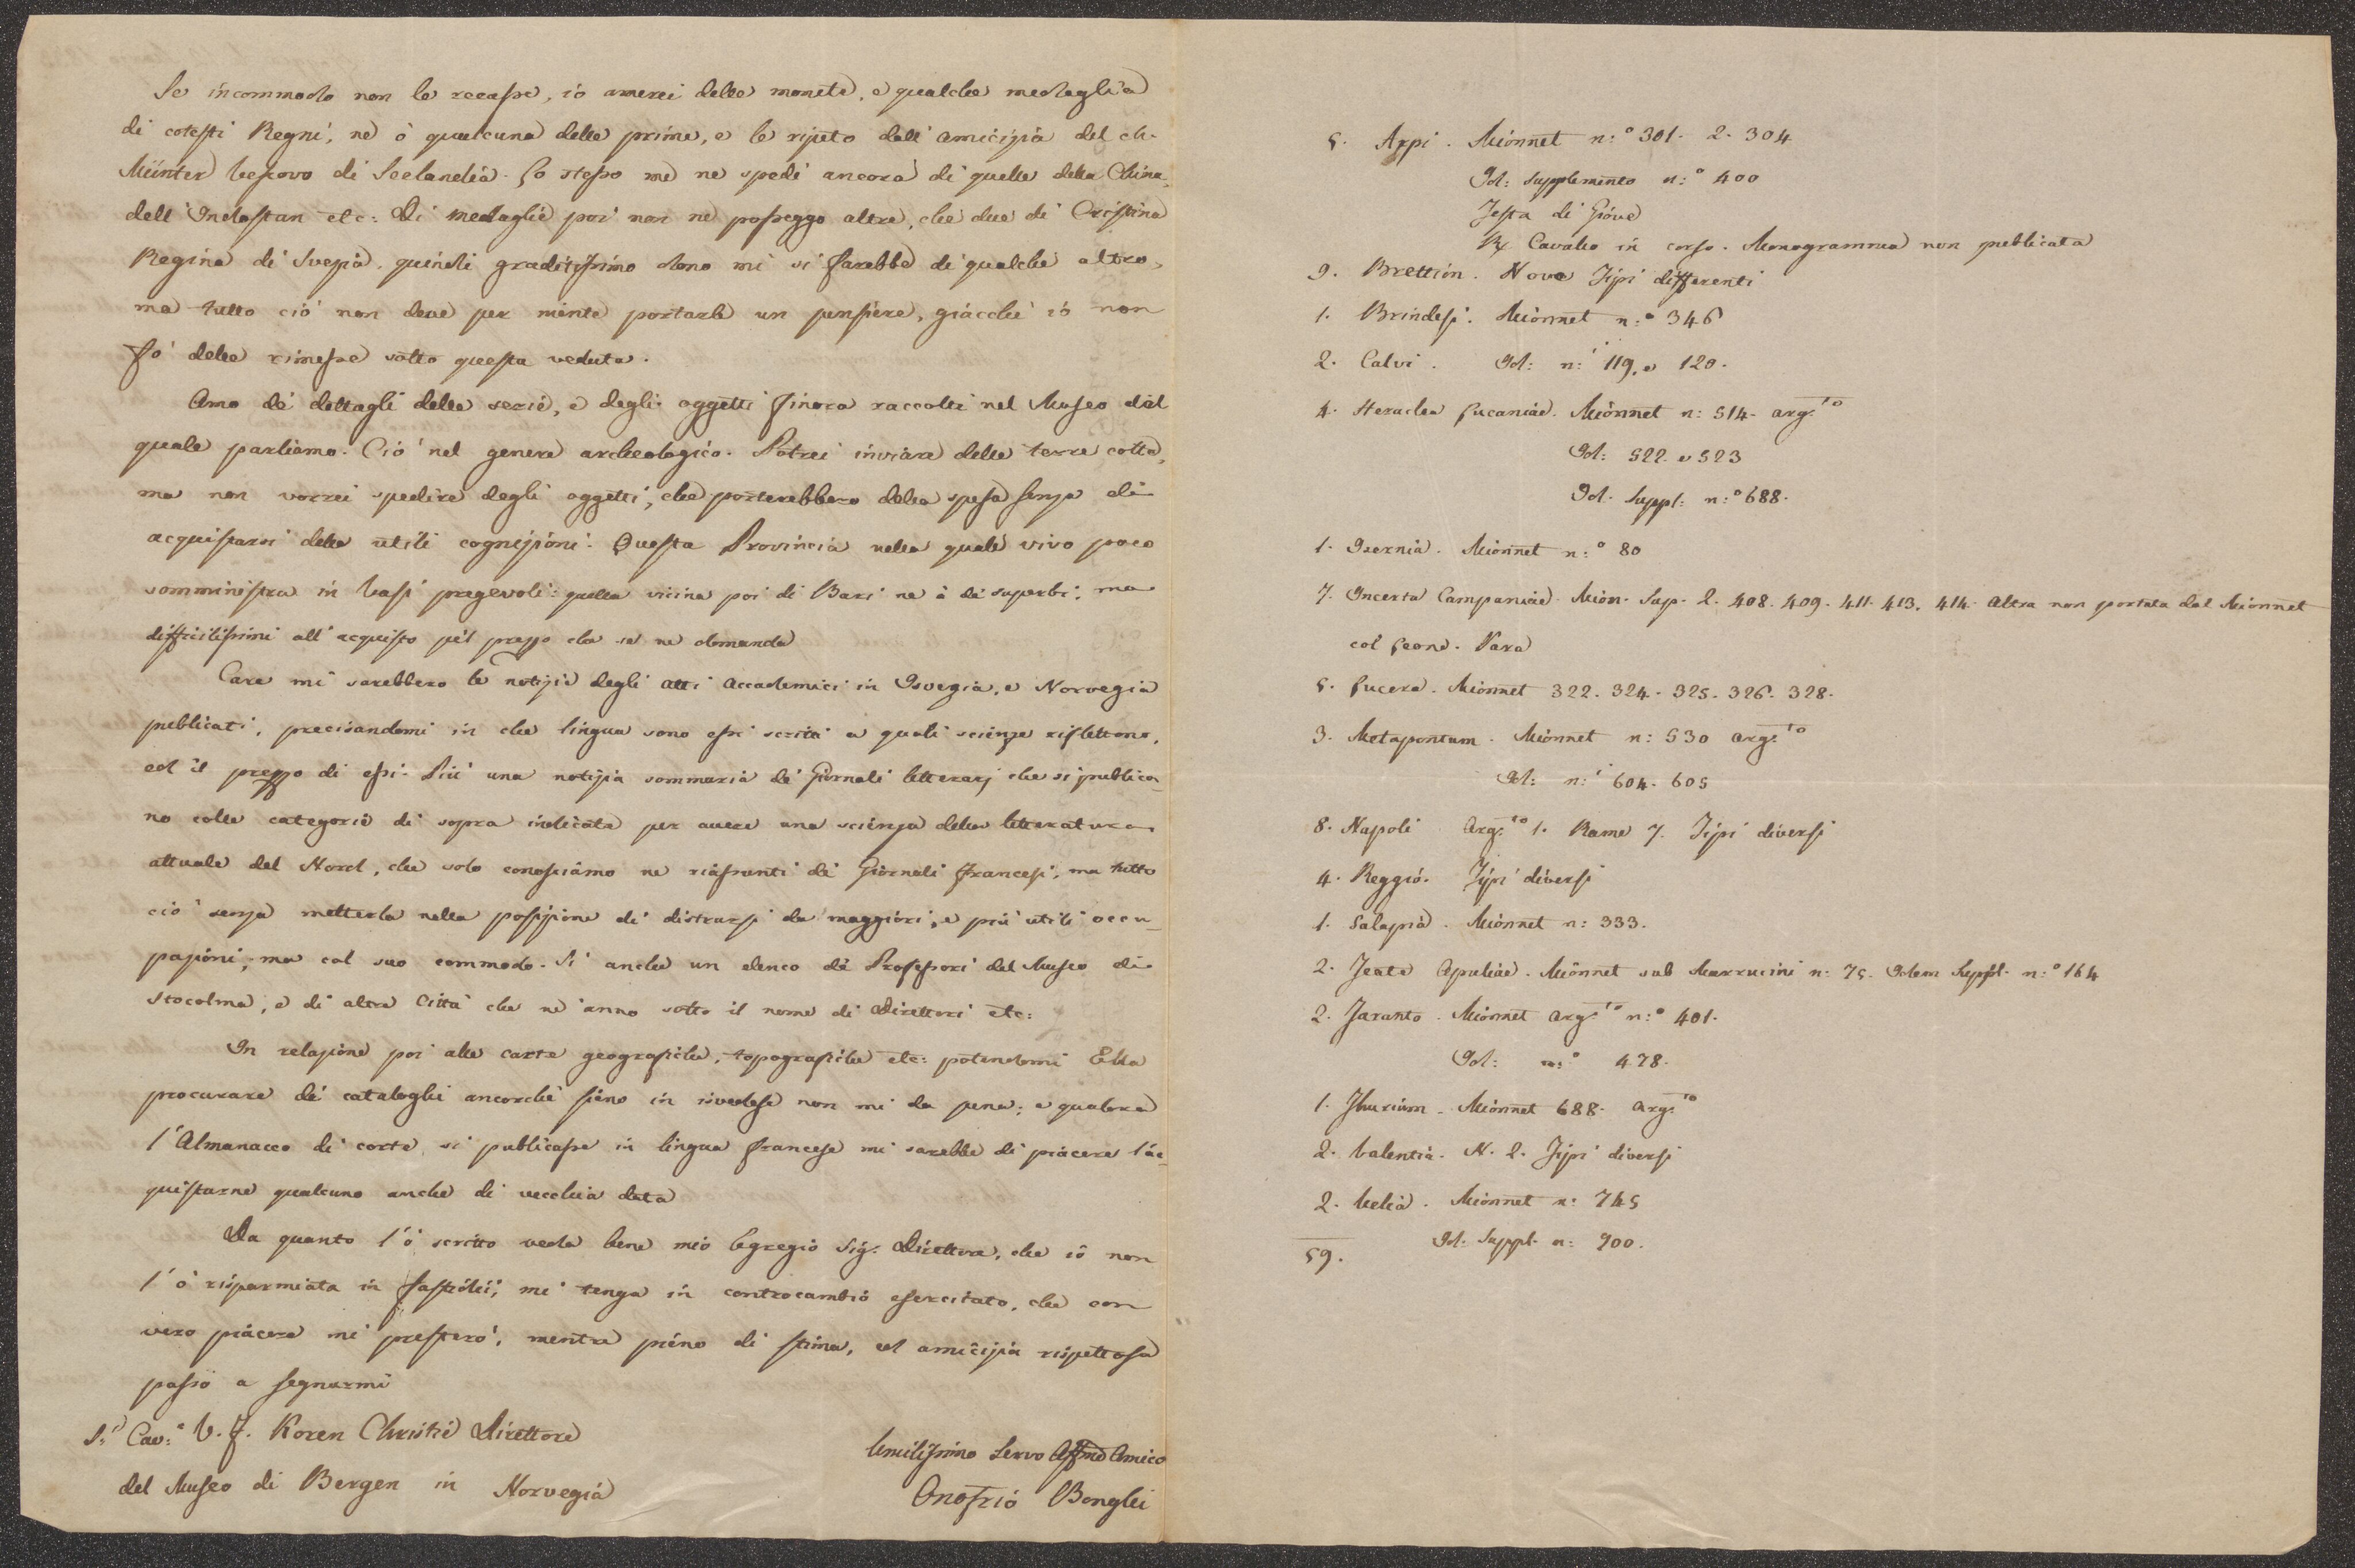 Se incommodo non le recasse, io amerei delle monete, e qualche medaglia
di cotesti Regni, nè ò qualcuna delle prime, e le ripeto dall'amicizia del ch.
Münter Vescovo di Seelandia. Lo stesso me ne spedì ancora di quelle della China,
dell'Indostan etc: Di medaglie poi non ne posseggo altre, che due di Cristina
Regina di Svezia, quindi graditissimo dono mi si farebbe di qualche altro,
ma tutto ciò non deve per niente portarle un pensiere, giacchè io non
fo' delle rimesse sotto questa veduta.
Amo de' dettagli delle serie, e degli oggetti finora raccolti nel Museo del
quale parliamo. Ciò nel genere archeologico. Potrei inviare delle terre cotte,
ma non vorrei spedire degli oggetti, che porterebbero della spesa senza di
acquistarsi delle utili cognizioni. Questa Provincia nella quale vivo poco
somministra in Vasi pregevoli: quella vicina poi di Bari ne à di superbi, ma
difficilissimi all'acquisto pel prezzo che se ne domanda
Care mi sarebbero le notizie degli atti Accademici in Isvezia, e Norvegia
publicati, precisandomi in che lingua sono essi scritti a quali scienze riflettono,
ed il prezzo di essi. Più una notizia sommaria de' Giornali letterarj che si publica-
no colle categorie di sopra indicate per avere una scienza della letteratura
attuale del Nord, che solo conosciamo ne' riassunti de' Giornali Francesi, ma tutto
ciò senza metterla nella posizione di distrarsi da maggiori, e più utili occu-
pazioni, ma col suo commodo. Sì anche un elenco de' Professori del Museo di
Stocolma, e di altre Città che ne anno sotto il nome di Direttori etc:
In relazione poi alle carte geografiche, topografiche etc: potendomi Ella
procurare de' cataloghi ancorchè sieno in isvedese non mi da pena; e qualora
l'Almanacco di corte si publicasse in lingua francese mi sarebbe di piacere l'ac-
quistarne qualcuno anche di vecchia data
Da quanto l'ò scritto veda bene mio Egregio Sig. Direttore, che io non
l'ò risparmiata in fastidii; mi tenga in controcambio esercitato, che con
vero piacere mi presterò, mentre pieno di stima, ed amicizia rispettosa
passo a segnarmi
S.r Cav.e V. J. Koren Christie Direttore
del Museo di Bergen in Norvegia
Umilissimo Servo Affmo Amico
Onofrio Bonghi
5. Arpi. Mionnet n:° 301. 2. 304
Id: Supplemento n:° 400
Testa di Giove
℞ Cavallo in corso. Monogramma non publicata
9. Brettion. Nove Tipi differenti
1. Brindesi. Mionnet n:° 346
2. Calvi. Id: n:i 119, e 120.
4. Heraclea Lucaniae. Mionnet n: 514. arg.to
Id: 522. e 523
Id. Suppl: n:° 688.
1. Isernia. Mionnet n:° 80
7. Incerta Campaniae. Mion. Sup. 2. 408. 409. 411. 413. 414. Altra non portata dal Mionnet
col Leone. Rara
5. Lucera. Mionnet 322. 324. 325. 326. 328.
3. Metapontum. Mionnet n: 530 arg.to
Id: n:i 604. 605
8. Napoli Arg.to 1. Rame 7. Tipi diversi
4. Reggio. Tipi diversi
1. Salapia. Mionnet n: 333.
2. Teate Apuliae. Mionnet sub Marrucini n: 75. Idem Suppl. n:° 164
2. Taranto. Mionnet arg.to n:° 401.
Id: n:° 478.
1. Thurium. Mionnet 688. arg.to
2. Valentia. N. 2. Tipi diversi
2. Velia. Mionnet n: 745
Id. Suppl. n: 900.
59.